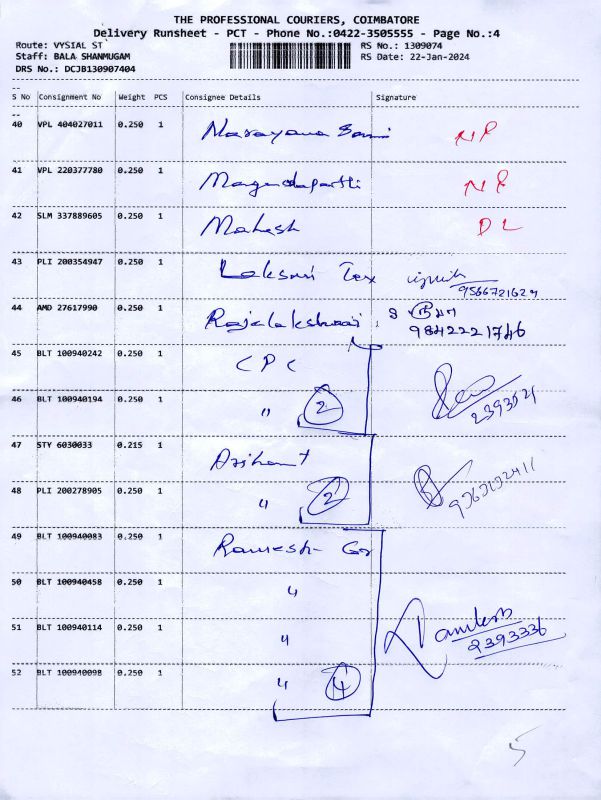 THE PROFESSIONAL COURIERS, COIMBATORE
Delivery Runsheet - PCT - Phone No.:0422-3505555 - Page No.:4
Route: VYSIAL ST
RS No.: 1309074
Staff: BALA SHANMUGAM
RS Date: 22-Jan-2024
DRS No.: DCJB130907404
S No Consignment No Weight PCS Consignee Details Signature
40 VPL 404027011 0.250 1 Narayana
41 VPL 220377780 0.250 1
42 SLM 337889605 0.250 1 Mahesh DL
43 PLI 200354947 0.250 1 Laksmi Tex
44 AMD 27617990 0.250 1 Rajalakshmi
9842221746
45 BLT 100940242 0.250 1 CPC
46 BLT 100940194 0.250 1 " 2
47 STY 6030033 0.215 1 Arihant
48 PLI 200278905 0.250 1 " 2
49 BLT 100940083 0.250 1 Ramesh Gr
50 BLT 100940458 0.250 1 "
51 BLT 100940114 0.250 1 "
2393336
52 BLT 100940098 0.250 1 " 4
5